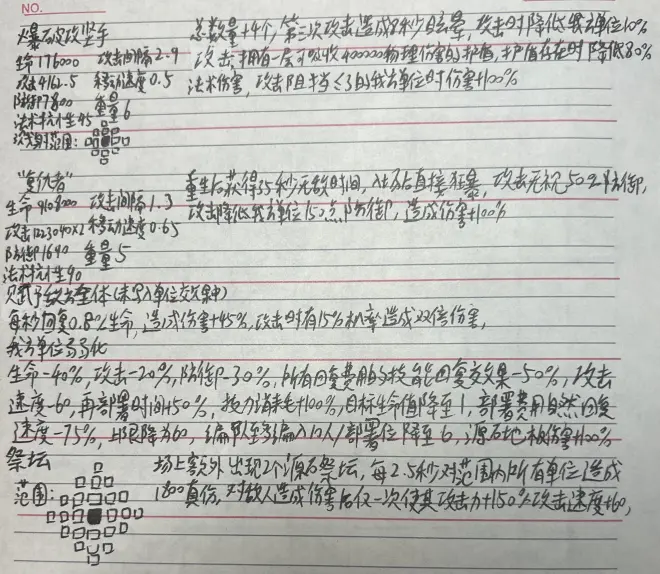 NO.
爆破攻坚手
总数量+4个,第三次攻击造成8秒眩晕,攻击时降低我方单位10%
生命176000 攻击间隔2.9
攻击,拥有一层可吸收400000物理伤害的护盾,护盾存在时降低80%
攻击4162.5 移动速度0.5
法术伤害,攻击阻挡≤3的我方单位时伤害+100%
防御7800 重量6
法术抗性95
溅射范围:
“复仇者”
重生后获得35秒无敌时间,入场后直接狂暴,攻击无视50%防御,
生命 攻击间隔1.3
攻击降低我方单位150点防御,造成伤害+100%
移动速度0.65
防御1690 重量5
法术抗性90
赋予敌方全体(未写入单位效果中)
每秒回复0.8%生命,造成伤害+45%,攻击时有15%机率造成22倍伤害,
我方单位弱化
生命-40%,攻击-20%,防御-30%,所有回复费用的技能回复效果-50%,攻击
速度-60,再部署时间+50%,技力消耗+100%,目标生命值降至1,部署费用自然回复
速度-75%,上限降为60,编队至多编入10人/部署位降至6,源石地板伤害+100%
祭坛
场上额外出现2个源石祭坛,每2.5秒对范围内所有单位造成
范围:
1800真伤,对敌人造成伤害后仅一次使其攻击力+150%攻击速度+60,